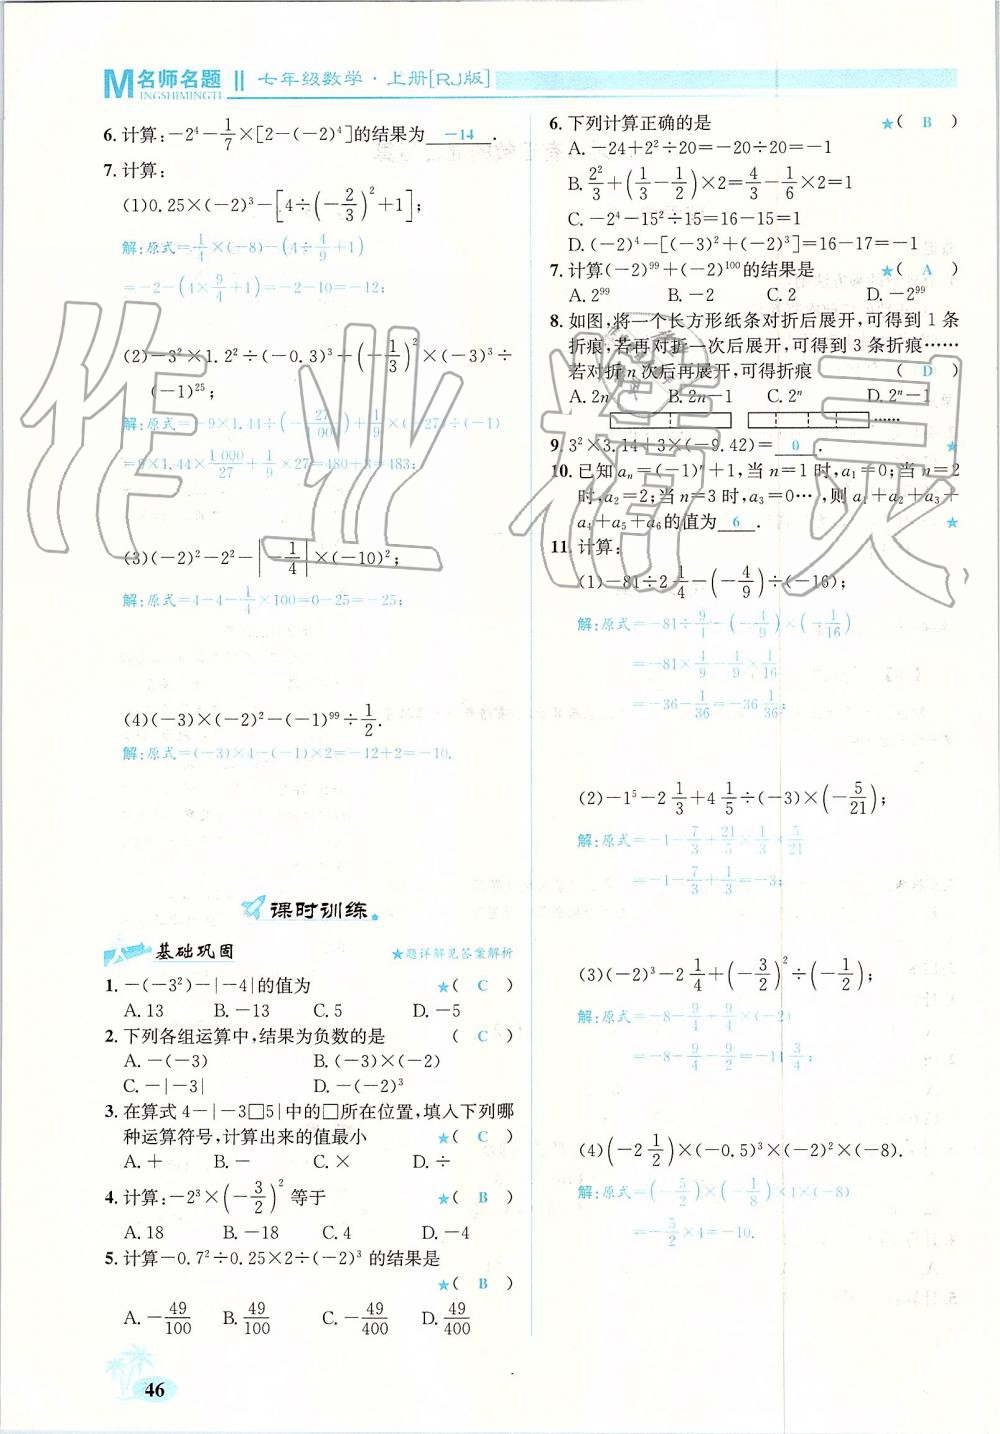 M名师名题 七年级数学·上册[RJ版]
INGSHIMINGTI
6. 计算:-2⁴-1/7×[2-(-2)⁴]的结果为 -14 .
7. 计算:
(1)0.25×(-2)³-[4÷(-2/3)²+1];
解:原式=1/4×(-8)-(4÷4/9+1)
=-2-(4×9/4+1)=-2-10=-12;
(2)-3²×1.2²÷(-0.3)³+(-1/3)²×(-3)³÷
(-1)²⁵;
解:原式=-9×1.44÷(-27/1000)+1/9×(-27)÷(-1)
=9×1.44×1000/27+1/9×27=480+3=483;
(3)(-2)²-2²-|-1/4|×(-10)²;
解:原式=4-4-1/4×100=0-25=-25;
(4)(-3)×(-2)²-(-1)⁹⁹÷1/2.
解:原式=(-3)×4-(-1)×2=-12+2=-10.
课时训练
基础巩固 ★题详解见答案解析
1. -(-3²)-|-4|的值为 ★( C )
A. 13 B. -13 C. 5 D. -5
2. 下列各组运算中,结果为负数的是 ( C )
A. -(-3) B. (-3)×(-2)
C. -|-3| D. -(-2)³
3. 在算式 4-|-3□5|中的□所在位置,填入下列哪
种运算符号,计算出来的值最小 ★( C )
A. + B. - C. × D. ÷
4. 计算:-2³×(-3/2)² 等于 ★( B )
A. 18 B. -18 C. 4 D. -4
5. 计算-0.7²÷0.25×2÷(-2)³ 的结果是
★( B )
A. -49/100 B. 49/100 C. -49/400 D. 49/400
46
6. 下列计算正确的是 ★( B )
A. -24+2²÷20=-20÷20=-1
B. 2²/3+(1/3-1/2)×2=4/3-1/6×2=1
C. -2⁴-15²÷15=16-15=1
D. (-2)⁴-[(-3)²+(-2)³]=16-17=-1
7. 计算(-2)⁹⁹+(-2)¹⁰⁰的结果是 ★( A )
A. 2⁹⁹ B. -2 C. 2 D. -2⁹⁹
8. 如图,将一个长方形纸条对折后展开,可得到 1 条
折痕,若再对折一次后展开,可得到 3 条折痕……
若对折 n 次后再展开,可得折痕 ( D )
A. 2n B. 2n-1 C. 2ⁿ D. 2ⁿ-1
……
9. 3²×3.14+3×(-9.42)= 0 . ★
10. 已知 aₙ=(-1)ⁿ+1,当 n=1 时,a₁=0;当 n=2
时,a₂=2;当 n=3 时,a₃=0…,则 a₁+a₂+a₃+
a₄+a₅+a₆的值为 6 . ★
11. 计算:
(1)-81÷2 1/4-(-4/9)÷(-16);
解:原式=-81÷9/4-(-4/9)×(-1/16)
=-81×4/9-4/9×1/16
=-36-1/36=-36 1/36;
(2)-1⁵-2 1/3+4 1/5÷(-3)×(-5/21);
解:原式=-1-7/3+21/5×1/3×5/21
=-1-7/3+1/3=-3;
(3)(-2)³-2 1/4+(-3/2)²÷(-1/2);
解:原式=-8-9/4+9/4×(-2)
=-8-9/4-9/2=-14 3/4;
(4)(-2 1/2)×(-0.5)³×(-2)²×(-8).
解:原式=(-5/2)×(-1/8)×4×(-8)
=-5/2×4=-10.
作业精灵